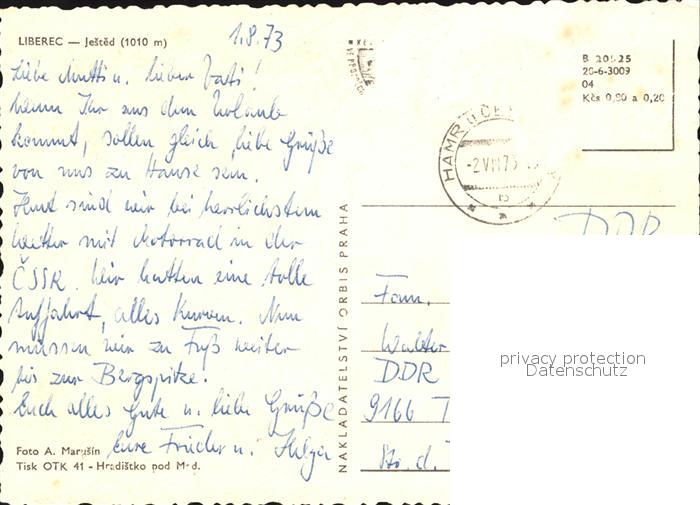 LIBEREC — Ještěd (1010 m)
1.8.73
Liebe Mutti u. lieber Vati!
Wenn Ihr aus dem Urlaub
kommt, sollen gleich liebe Grüße
von uns zu Hause sein.
Heut sind wir bei herrlichstem
Wetter mit Motorrad in der
ČSSR. Wir hatten eine tolle
Auffahrt, alles Kurven. Nun
müssen wir zu Fuß weiter
bis zur Bergspitze.
Euch alles Gute u. liebe Grüße
Eure Frieder u. Helga
Foto A. Maršín
Tisk OTK 41 - Hradištko pod Med.
NAKLADATELSTVÍ ORBIS PRAHA
B 20525
20-6-3009
04
Kčs 0,80 a 0,20
HAMR U ČE
-2.VIII.73
b
DDR
Fam.
Walter
DDR
9166 T
Str. d.
privacy protection
Datenschutz